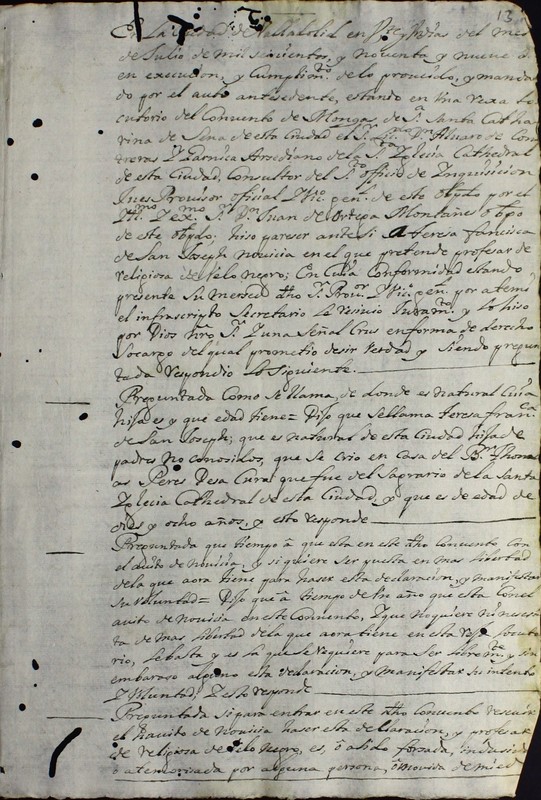 13
En la ciudad de Valladolid en Veyte dias del mes
de Julio de mil seiscientos, y noventa y nueve a.
en execucion, y cumplim.to de lo proveido, y manda
do por el auto antesedente, estando en una rexa lo
cutorio del Convento de Monjas de S.ta Santa Catha
rina de Sena de esta Ciudad el S.r D.n Alvaro de Con
treras Arsediano de la S.ta Iglecia Cathedral
de esta Ciudad, Consultor del S.to officio de Inquisicion
Jues Provisor official Vic.o gen.l de este obpdo por el
Ill.mo y ex.mo S.r D.r Juan de Ortega Montañes obpo
de este obpdo. hiso pareser ante si A teresa fancisca
de San Joseph novicia en el que pretende profesar de
religiosa de velo negro; En Cuia Conformidad estando
presente su mersed dho S.r Prov.or y Vic.o gen.l por ante mi
el infrascripto Secretario le resivio Juram.to y lo hiso
por Dios nro S.r y una Señal Crus en forma de derecho
Socargo del qual prometio desir verdad y siendo pregun
tada respondio lo Siguiente.
Preguntada Como se llama, de donde es natural Cuia
hija es y que edad tiene= Dijo que se llama teresa fran.ca
de San Joseph; que es natural de esta Ciudad hija de
padres no Conosidos, que se Crio en Casa del B.r Thomas
Peres Cura que fue del Sagrario de la Santa
Iglecia Cathedral de esta Ciudad, y que es de edad de
dies y ocho años, y esto responde
Preguntada que tiempo â que esta en este dho Convento Con
el avito de novicia, y si quiere Ser puesta en mas libertad
de la que aora tiene para haser esta declaracion, y manifestar
su voluntad= Dijo que â tiempo de un año que esta Con el
avito de novicia en este Convento, y que no quiere ni nesesi
ta de mas libertad de la que aora tiene en esta rexa locuto
rio, le basta y es la que se requiere para Ser libre, y sin
embaraso alguno esta declaracion, y manifestar su intento
y voluntad, y esto responde
Preguntada si para entrar en este dho Convento resevir
el havito de Novicia haser esta declaracion, y profesar
de religiosa de velo Negro, es, ô a sido forsada, indusida
ô atemorisada por alguna persona, ô movida de miedo